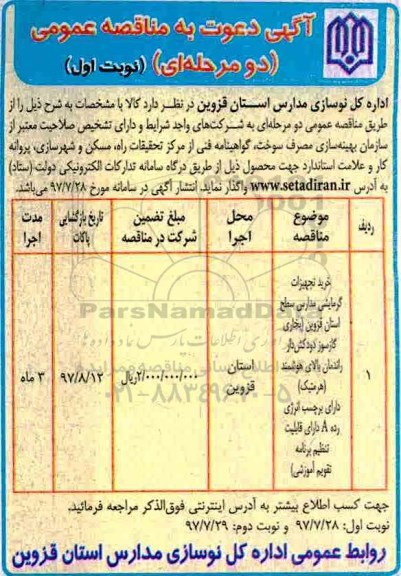 آگهی دعوت به مناقصه عمومی
(دو مرحله‌ای) (نوبت اول)
اداره کل نوسازی مدارس استان قزوین در نظر دارد کالا با مشخصات به شرح ذیل را از
طریق مناقصه عمومی دو مرحله‌ای به شرکت‌های واجد شرایط و دارای تشخیص صلاحیت معتبر از
سازمان بهینه‌سازی مصرف سوخت، گواهینامه فنی از مرکز تحقیقات راه، مسکن و شهرسازی، پروانه
کار و علامت استاندارد جهت محصول ذیل از طریق درگاه سامانه تدارکات الکترونیکی دولت (ستاد)
به آدرس www.setadiran.ir واگذار نماید. انتشار آگهی در سامانه مورخ ۹۷/۷/۲۸ می‌باشد.
ردیف موضوع مناقصه محل اجرا مبلغ تضمین شرکت در مناقصه تاریخ بازگشایی پاکات مدت اجرا
۱
خرید تجهیزات
گرمایشی مدارس سطح
استان قزوین (بخاری
گازسوز دودکش‌دار
راندمان بالای هوشمند
(هرمتیک)
دارای برچسب انرژی
رده A دارای قابلیت
تنظیم برنامه
تقویم آموزشی)
استان
قزوین
۲/۰۰۰/۰۰۰/۰۰۰ریال
۹۷/۸/۱۲
۳ ماه
ParsNamadData
۰۲۱-۸۸۳۴۹۶۷۰-۵
جهت کسب اطلاع بیشتر به آدرس اینترنتی فوق‌الذکر مراجعه فرمائید.
نوبت اول: ۹۷/۷/۲۸ و نوبت دوم: ۹۷/۷/۲۹
روابط عمومی اداره کل نوسازی مدارس استان قزوین